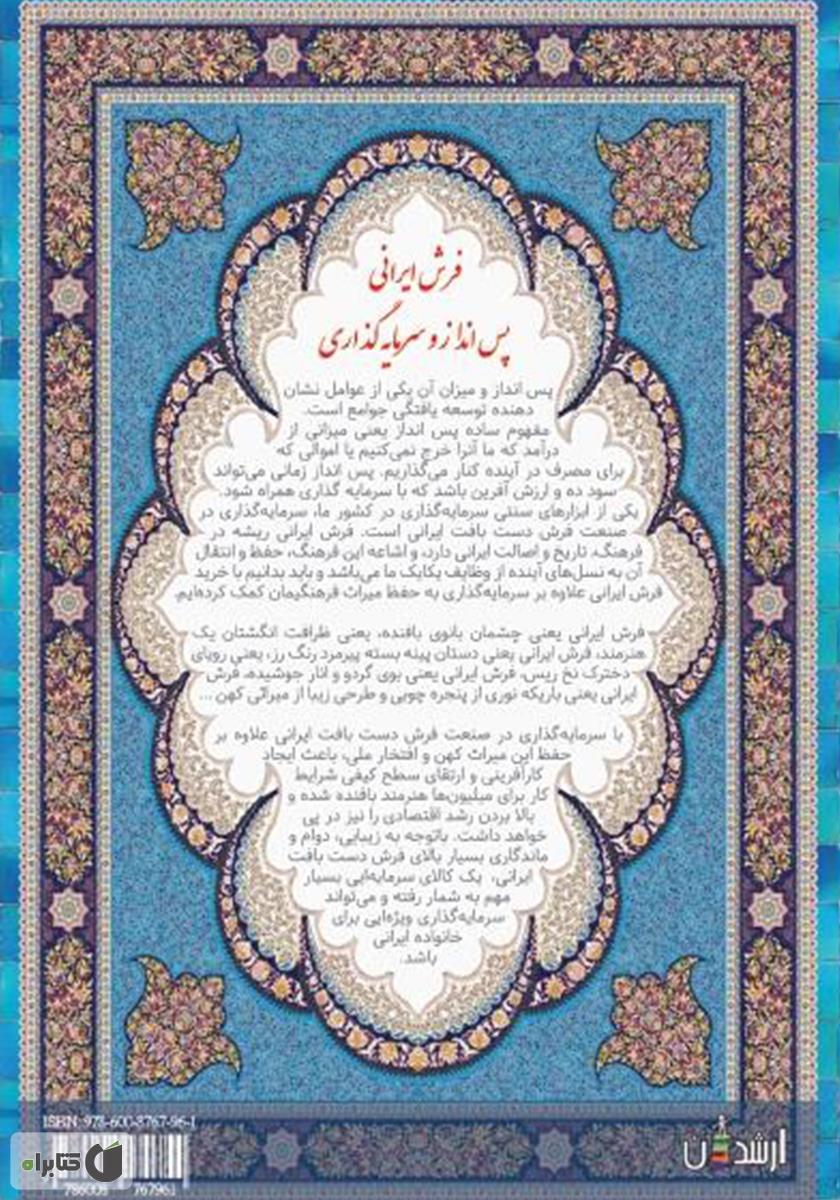 فرش ایرانی
پس انداز و سرمایه گذاری
پس انداز و میزان آن یکی از عوامل نشان
دهنده توسعه یافتگی جوامع است.
مفهوم ساده پس انداز یعنی میزانی از
درآمد که ما آنرا خرج نمی‌کنیم یا اموالی که
برای مصرف در آینده کنار می‌گذاریم. پس انداز زمانی می‌تواند
سود ده و ارزش آفرین باشد که با سرمایه گذاری همراه شود.
یکی از ابزارهای سنتی سرمایه‌گذاری در کشور ما، سرمایه‌گذاری در
صنعت فرش دست بافت ایرانی است. فرش ایرانی ریشه در
فرهنگ، تاریخ و اصالت ایرانی دارد، و اشاعه این فرهنگ، حفظ و انتقال
آن به نسل‌های آینده از وظایف یکایک ما می‌باشد و باید بدانیم با خرید
فرش ایرانی علاوه بر سرمایه‌گذاری به حفظ میراث فرهنگیمان کمک کرده‌ایم.
فرش ایرانی یعنی چشمان بانوی بافنده، یعنی ظرافت انگشتان یک
هنرمند، فرش ایرانی یعنی دستان پینه بسته پیرمرد رنگ رز، یعنی رویای
دخترک نخ ریس، فرش ایرانی یعنی بوی گردو و انار جوشیده، فرش
ایرانی یعنی باریکه نوری از پنجره چوبی و طرحی زیبا از میراثی کهن...
با سرمایه‌گذاری در صنعت فرش دست بافت ایرانی علاوه بر
حفظ این میراث کهن و افتخار ملی، باعث ایجاد
کارآفرینی و ارتقای سطح کیفی شرایط
کار برای میلیون‌ها هنرمند بافنده شده و
بالا بردن رشد اقتصادی را نیز در پی
خواهد داشت. باتوجه به زیبایی، دوام و
ماندگاری بسیار بالای فرش دست بافت
ایرانی، یک کالای سرمایه‌ایی بسیار
مهم به شمار رفته و می‌تواند
سرمایه‌گذاری ویژه‌ایی برای
خانواده ایرانی
باشد.
ISBN: 978-600-8767-96-1
ارشدان
کتابراه